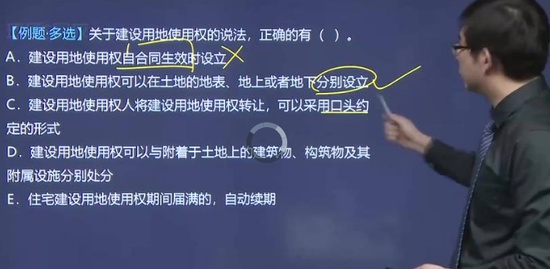 【例题·多选】关于建设用地使用权的说法，正确的有（ ）。
A．建设用地使用权自合同生效时设立
B．建设用地使用权可以在土地的地表、地上或者地下分别设立
C．建设用地使用权人将建设用地使用权转让，可以采用口头约
定的形式
D．建设用地使用权可以与附着于土地上的建筑物、构筑物及其
附属设施分别处分
E．住宅建设用地使用权期间届满的，自动续期